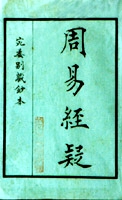 周易經疑
宛委別藏鈔本